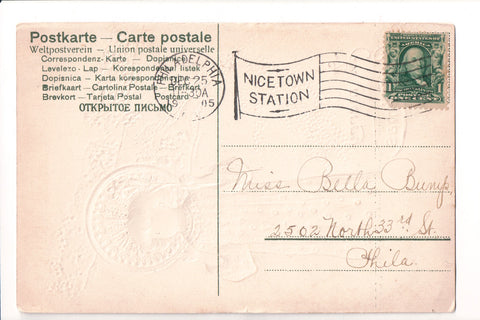 Postkarte — Carte postale
Weltpostverein — Union postale universelle
Correspondenz-Karte — Dopisnice
Levelezo-Lap — Korespondenční lístek
Dopisnica — Karta korespondencyjna
Briefkaart — Cartolina Postale — Brefkort
Brevkort — Tarjeta Postal Postcard
ОТКРЫТОЕ ПИСЬМО
PHILADELPHIA
DEC 25
05
NICETOWN
STATION
1
Miss Bella Bump,
2502 North 33rd St.
Phila.